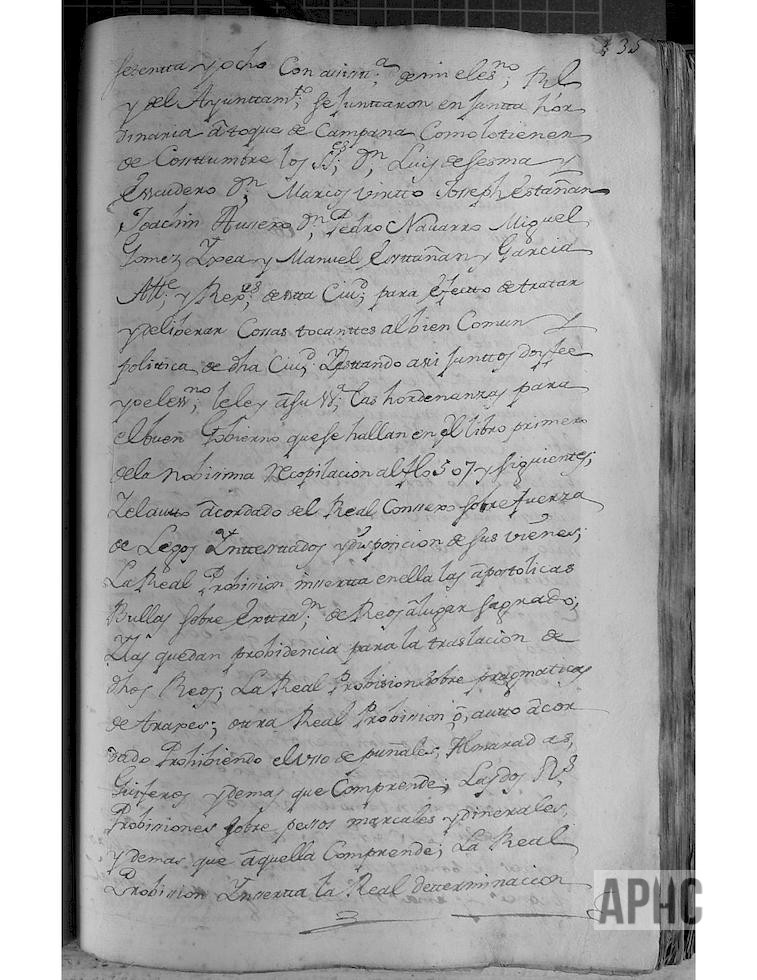 335
setentta y ocho Con asistt.ª de mi el es.no; Rl
y del Ayunttam.to; se Junttaron en Juntta hor
dinaria â toque de Campana Como lo tienen
de Costtumbre los SS.es; Dn, Luis de Sesma y
Escudero Dn; Marcos vintto Joseph Estañan
Joachin Ausero Dn, Pedro Navarro Miguel
Gomez Zpea y Manuel Esttañan y Garcia
Atte; y Rep.es; de estta Ciud; para Efecto de tratar
y deliberar Cossas tocanttes al bien Comun y
politica de dha Ciud, Y Esttando asi Junttos doy fee
yo el ess.no; le ley â su SSª; las hordenanzas para
el buen Gobierno que se hallan en el libro primero
de la Nobisima Recopilacion al flo 507 y siguientes;
Y el autto âcordado del Real Consexo sobre fuerza
de Legos Ynttestados y disposicion de sus vienes;
La Real Probision inserta en ella las âpostolicas
Bullas sobre Exttra.on de Reos â lugar sagrado;
Y las quedan probidencia para la traslacion de
dhos Reos; La Real Probision sobre pragmaticas
de traxes; ottra Real Probision ô, autto âcor
dado Prohibiendo el Usso de puñales, Almaradas,
Guiferos y demas que Comprende; Las dos Rs
Probisiones sobre pessos marcales y dinerales,
y demas que âquella Comprende; La Real
Probision Ynsertta la Real determinacion
APHC